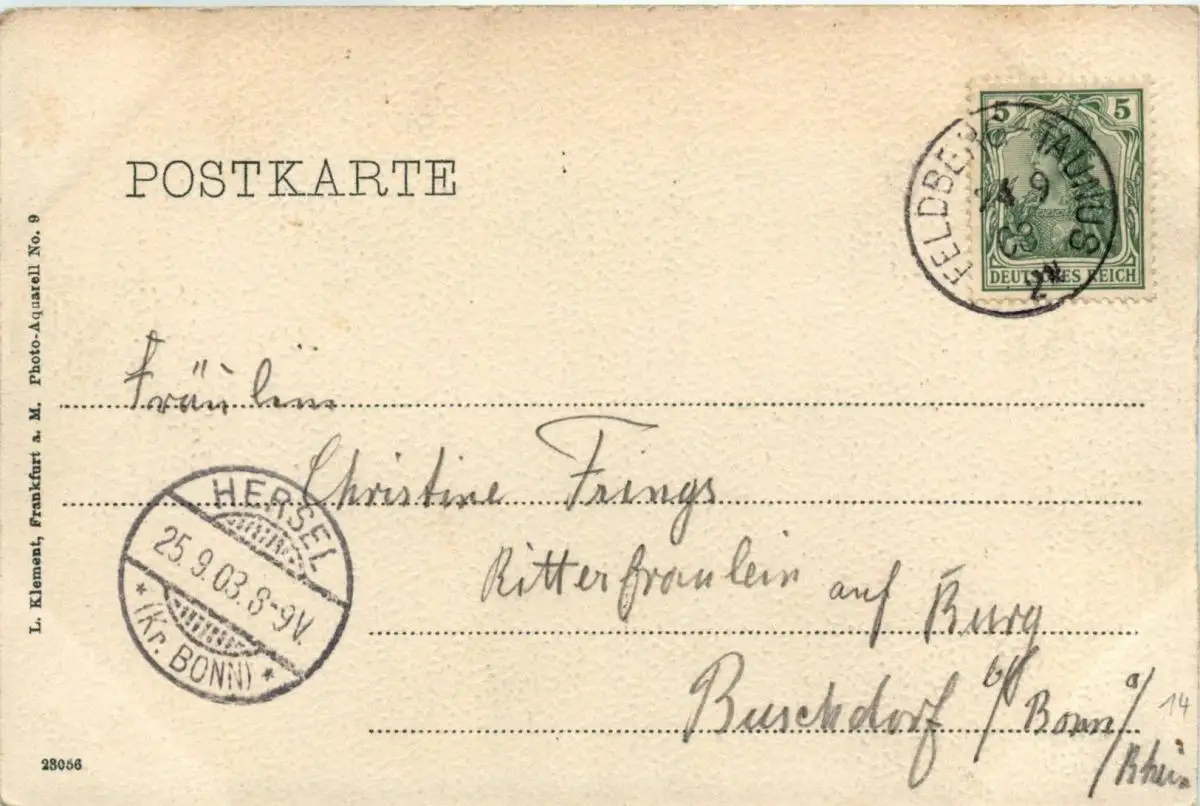 POSTKARTE
5 5
DEUTSCHES REICH
FELDBERG-TAUNUS
24 9
03
L. Klement, Frankfurt a. M. Photo-Aquarell No. 9
Fräulein
Christine Frings
Ritterfräulein auf Burg
Buschdorf b/ Bonn a/
Rhein
HERSEL
25.9.03.8-9V.
* (Kr. BONN) *
14
23056